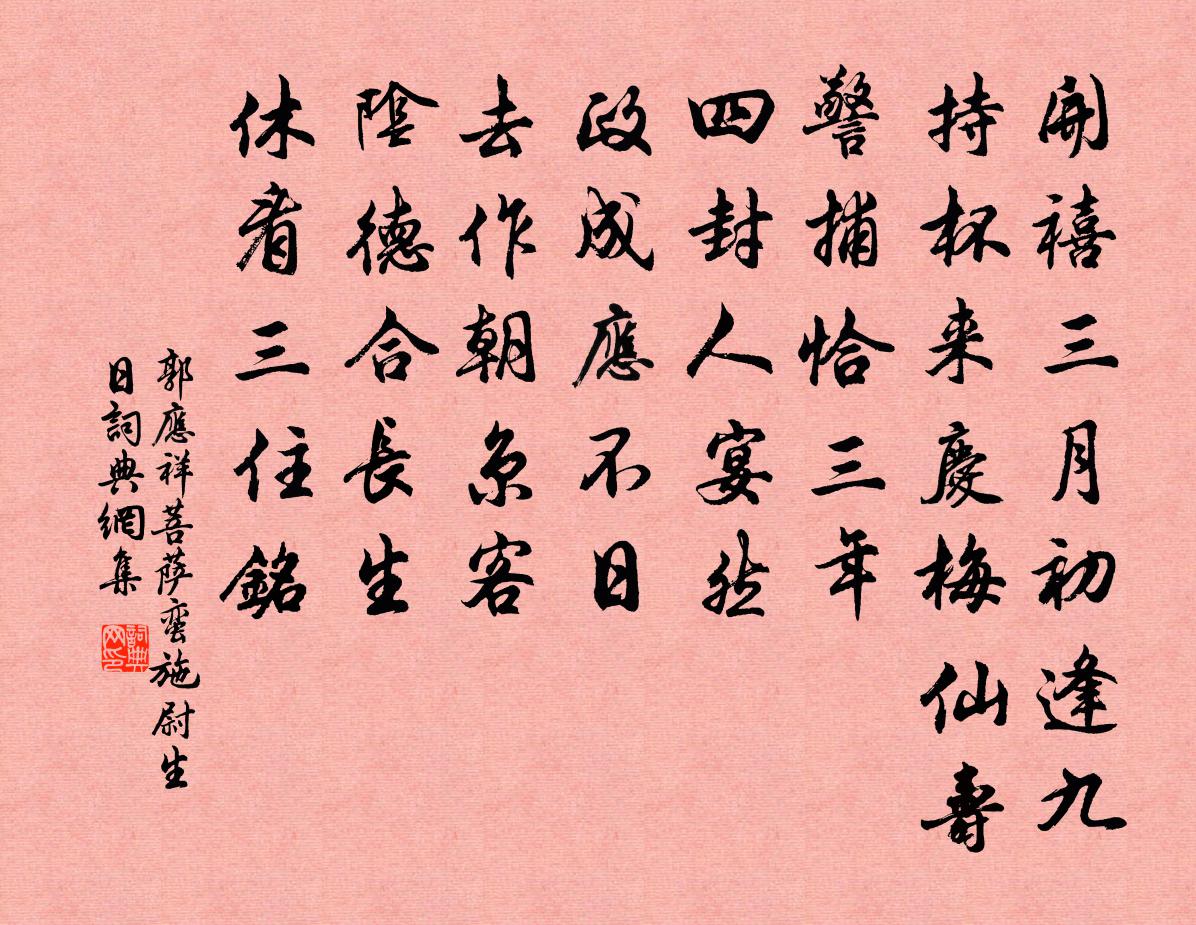 開禧三月初逢九
持杯来慶梅仙壽
警捕恰三年
四封人宴然
政成應不日
去作朝京客
陰德合長生
休看三住銘
郭應祥菩薩蛮施尉生
日詞典網集
詞典网印